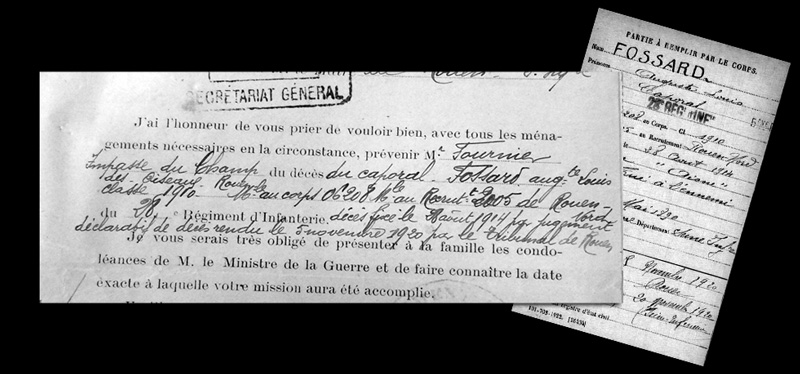 SECRÉTARIAT GÉNÉRAL
J'ai l'honneur de vous prier de vouloir bien, avec tous les ména-
gements nécessaires en la circonstance, prévenir Mr Fournier
Impasse du Champ du décès du caporal Fossard augte Louis
des Oiseaux Rouen No au corps 06208 No au Recrutt 2005 de Rouen-Nord
classe 1910
du 28e Régiment d'Infanterie, décès fixé le août 1914 par jugement
déclaratif de décès rendu le 5 novembre 1920 par le tribunal de Rouen
Je vous serais très obligé de présenter à la famille les condo-
léances de M. le Ministre de la Guerre et de faire connaître la date
exacte à laquelle votre mission aura été accomplie.
PARTIE À REMPLIR PAR LE CORPS.
Nom FOSSARD
Prénoms Auguste Louis
Caporal
28e RÉGIMENT
en Corps. - Cl 1910
au Recrutement Rouen Nord
28 août 1914
Aisne
à l'ennemi
Mai 1890
Département Seine Infre
Novembre 1920
Rouen
20 novembre 1920
Seine Inférieure
registre d'état civil